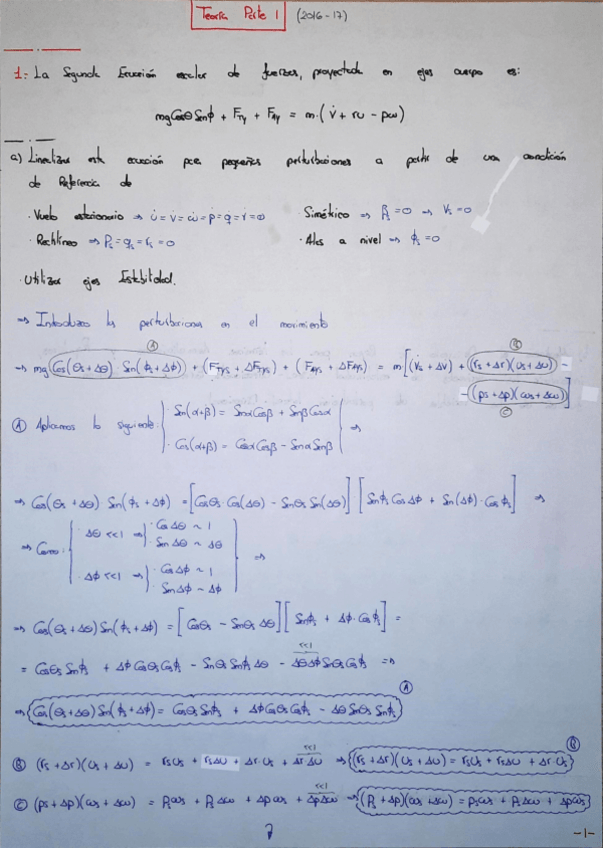 Teoría Parte 1 (2016-17)
1: La Segunda Ecuación escalar de fuerzas, proyectada en ejes cuerpo es:
mg Cosθ Senϕ + F_Ty + F_Ay = m·(v̇ + ru - pω)
a) Linealizar esta ecuación para pequeñas perturbaciones a partir de una condición
de Referencia de
· Vuelo estacionario ⇒ u̇ = v̇ = ω̇ = ṗ = q̇ = ṙ = 0 · Simétrico ⇒ βs = 0 ⇒ Vs = 0
· Rectilíneo ⇒ Ps = qs = rs = 0 · Alas a nivel ⇒ ϕs = 0
· Utilizar ejes Estabilidad.
⇒ Introduzco las perturbaciones en el movimiento
Ⓐ Ⓑ
⇒ mg (Cos(θs + Δθ) Sen(ϕs + Δϕ)) + (F_Tys + ΔF_Tys) + (F_Ays + ΔF_Ays) = m[(V̇s + Δv̇) + (rs + Δr)(us + Δu) -
- (ps + Δp)(ωs + Δω)]
Ⓒ
Ⓐ Aplicamos lo siguiente: { · Sen(α+β) = Senα Cosβ + Senβ Cosα
· Cos(α+β) = Cosα Cosβ - Senα Senβ } ⇒
⇒ Cos(θs + Δθ) Sen(ϕs + Δϕ) = [Cosθs Cos(Δθ) - Senθs Sen(Δθ)] [Senϕs Cos Δϕ + Sen(Δϕ)·Cosϕs] ⇒
⇒ Como: { · Δθ <<1 ⇒ } · Cos Δθ ~ 1
· Sen Δθ ~ Δθ
· Δϕ <<1 ⇒ } · Cos Δϕ ~ 1
· Sen Δϕ ~ Δϕ } ⇒
⇒ Cos(θs + Δθ) Sen(ϕs + Δϕ) = [Cosθs - Senθs Δθ] [Senϕs + Δϕ·Cosϕs] =
<<1
= Cosθs Senϕs + Δϕ Cosθs Cosϕs - Senθs Senϕs Δθ - ΔθΔϕ Senθs Cosϕs ⇒
Ⓐ
⇒ {Cos(θs + Δθ) Sen(ϕs + Δϕ) = Cosθs Senϕs + Δϕ Cosθs Cosϕs - Δθ Senθs Senϕs}
<<1 Ⓑ
Ⓑ (rs + Δr)(us + Δu) = rsus + rsΔu + Δr·us + ΔrΔu ⇒ {(rs + Δr)(us + Δu) = rsus + rsΔu + Δr·us}
<<1
Ⓒ (ps + Δp)(ωs + Δω) = Psωs + PsΔω + Δpωs + ΔpΔω ⇒ {(Ps + Δp)(ωs + Δω) = psωs + PsΔω + Δpωs}
-1-